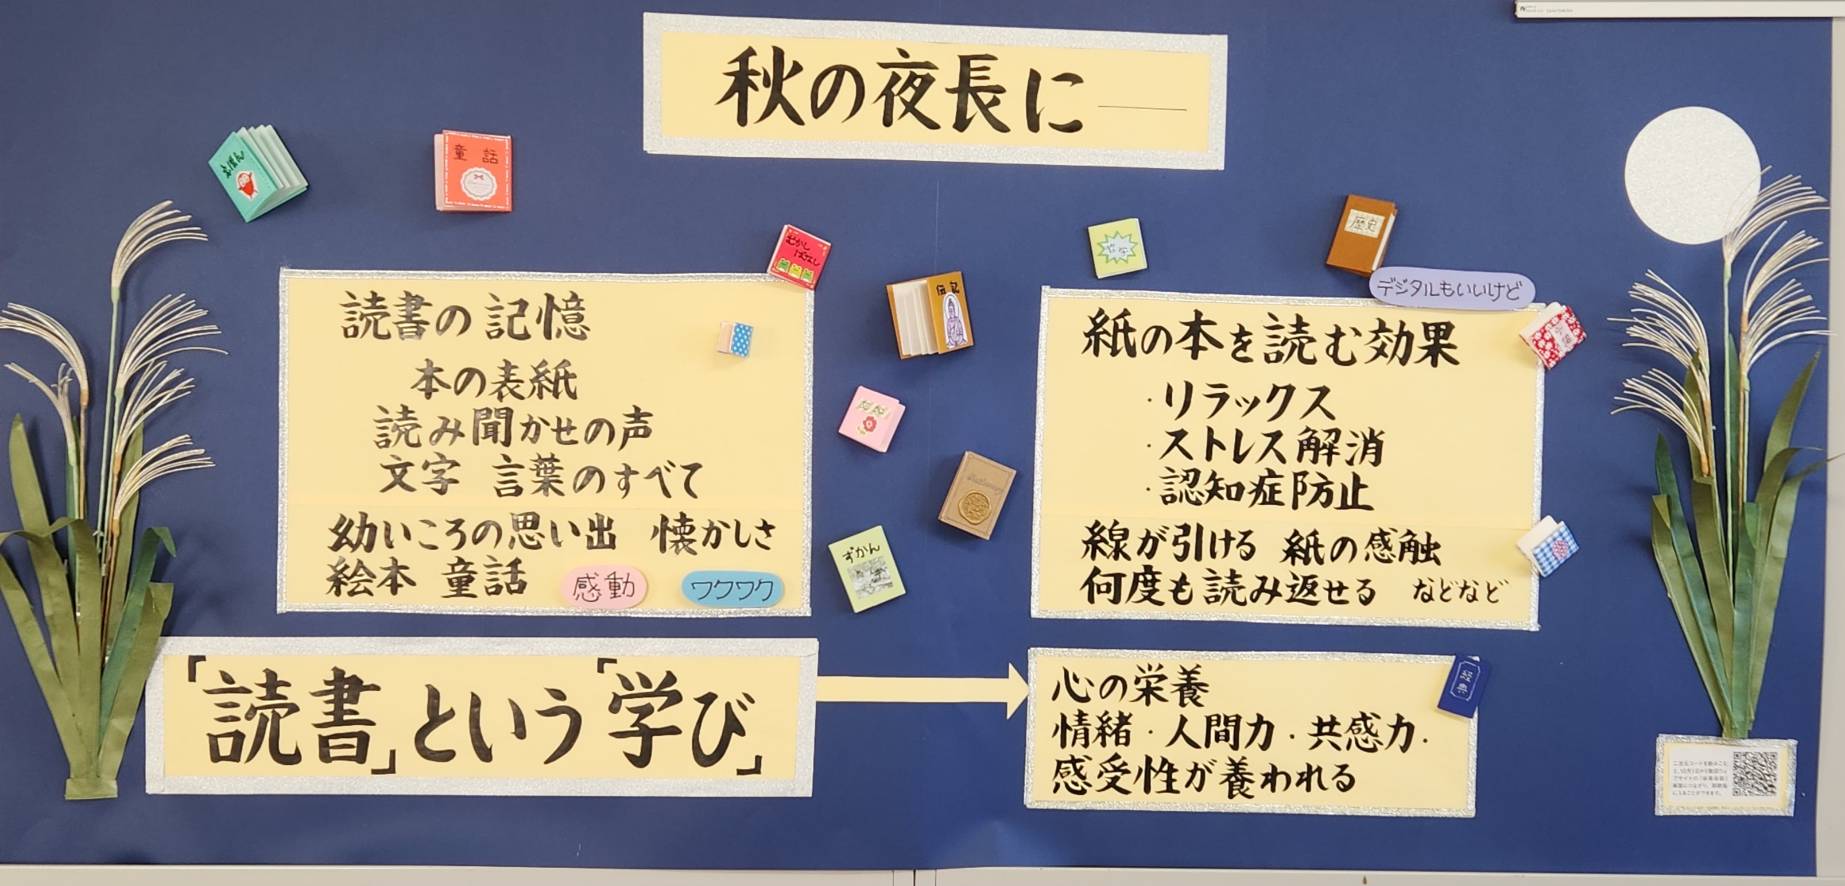 秋の夜長に――
えほん
童話
むかし
ばなし
伝記
歴史
デジタルもいいけど
読書の記憶
本の表紙
読み聞かせの声
文字 言葉のすべて
幼いころの思い出 懐かしさ
絵本 童話
感動
ワクワク
Dictionary
ずかん
紙の本を読む効果
・リラックス
・ストレス解消
・認知症防止
線が引ける 紙の感触
何度も読み返せる などなど
「読書」という「学び」
心の栄養
情緒・人間力・共感力・
感受性が養われる
経典